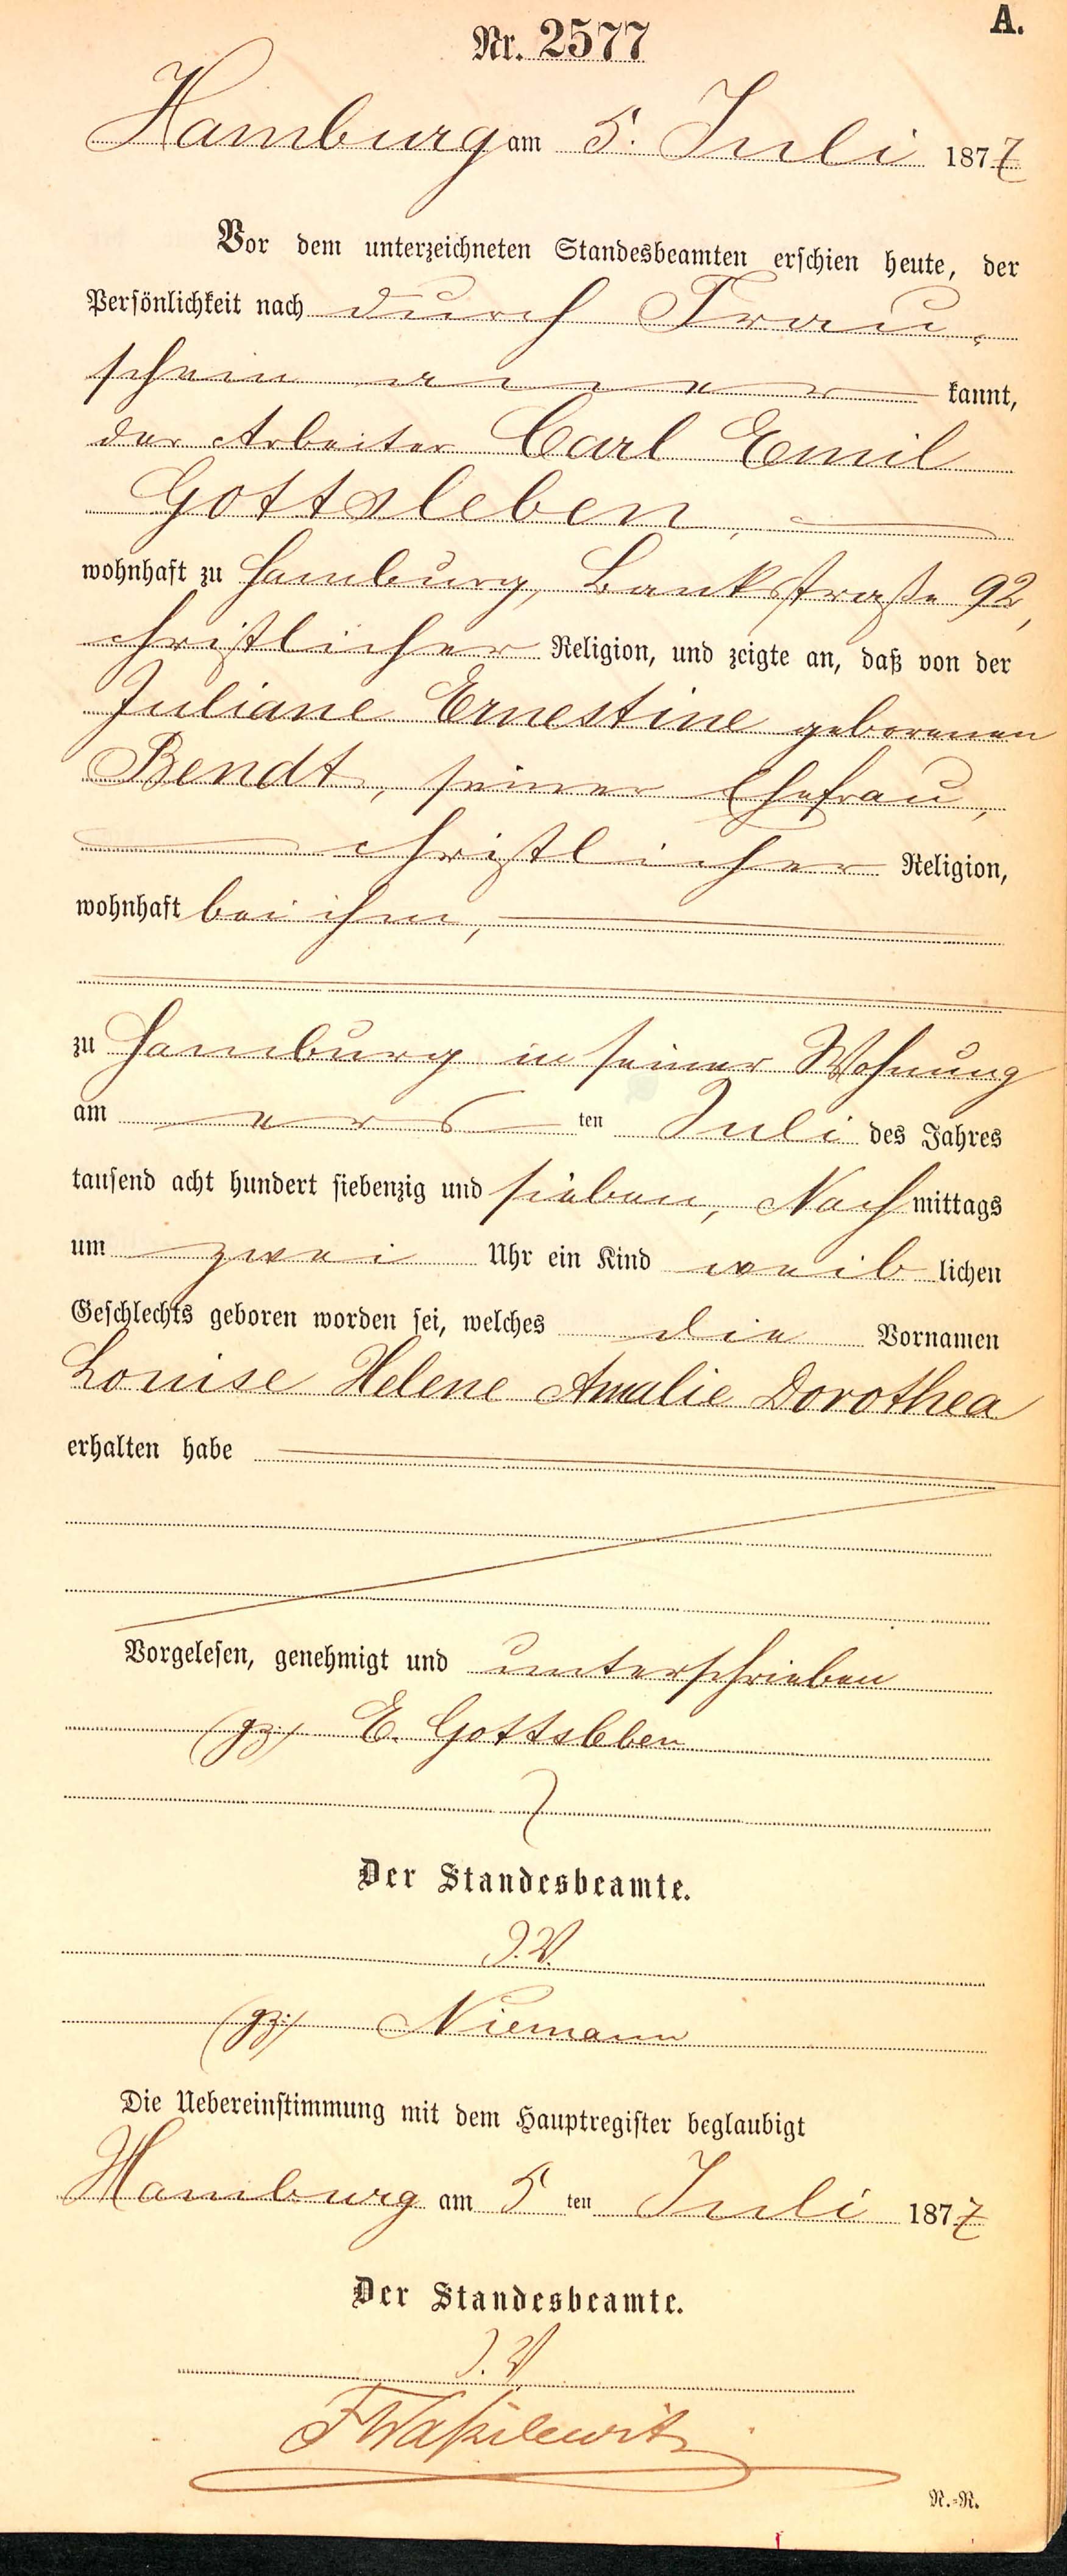 A.
Nr. 2577
Hamburg am 5. Juli 1877
Vor dem unterzeichneten Standesbeamten erschien heute, der
Persönlichkeit nach durch Trau-
schein aner kannt,
der Arbeiter Carl Emil
Gottsleben,
wohnhaft zu Hamburg, Bankstraße 92,
christlicher Religion, und zeigte an, daß von der
Juliane Ernestine geborenen
Bendt, seiner Ehefrau,
christlicher Religion,
wohnhaft bei ihm,
zu Hamburg in seiner Wohnung
am ers ten Juli des Jahres
tausend acht hundert siebenzig und sieben, Nachmittags
um zwei Uhr ein Kind weiblichen
Geschlechts geboren worden sei, welches die Vornamen
Louise Helene Amalie Dorothea
erhalten habe
Vorgelesen, genehmigt und unterschrieben
(gz) E. Gottsleben
Der Standesbeamte.
J.V.
(gz) Niemann
Die Uebereinstimmung mit dem Hauptregister beglaubigt
Hamburg am 5 ten Juli 1877
Der Standesbeamte.
J.V
N.-R.